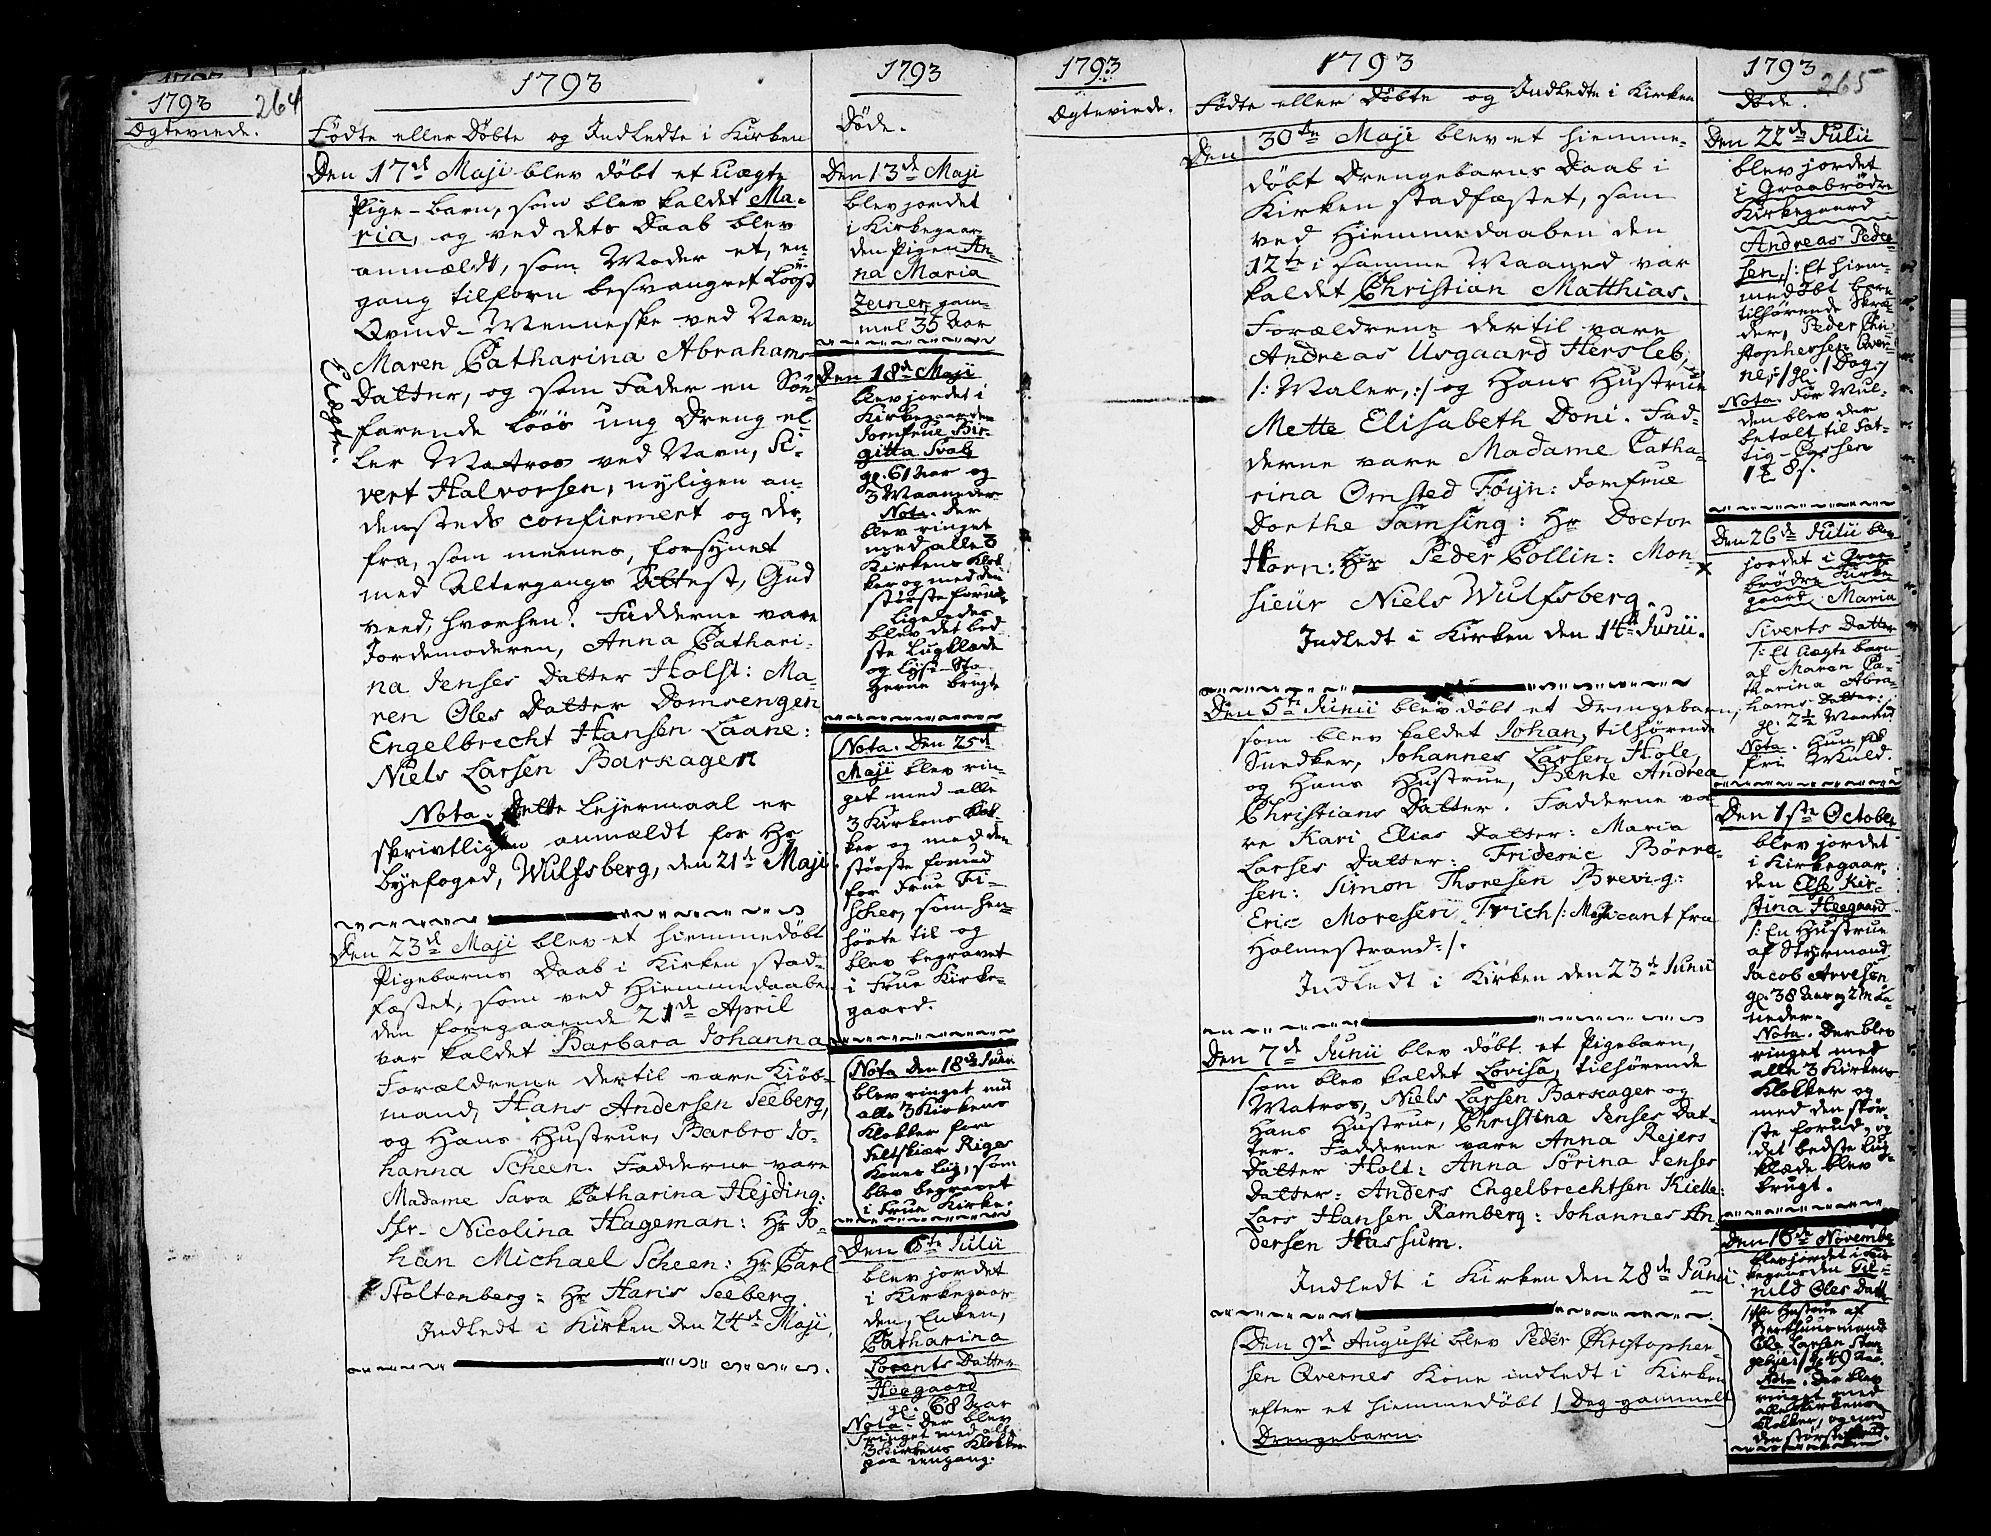 1793
264
Ægteviede.
1793
Fødte eller Døbte og Indledte i Kirken
Den 17de Maji blev døbt et Uægte
Pige-barn, som blev kaldet Ma-
ria, og ved dets Daab blev
anmældt, som Moder et, en-
gang tilforn besvangret Løøs
Qvind-Menneske ved Navn
Maren Catharina Abrahams
Datter, og som Fader en Søe-
farende Løøs ung Dreng el-
ler Matros ved Navn, Si-
vert Halvorsen, nyligen an-
densteds confirmert og der-
fra, som meenes, forsynet
med Altergangs Attest, Gud
veed, hvorhen? Fadderne vare
Jordemoderen, Anna Cathari-
na Jenses Datter Holst: Ma-
ren Oles Datter Domsengen
Engelbrecht Hansen Laane:
Niels Larsen Barkager
Nota. Dette Lejermaal er
skrivtligen anmældt for Hr
Byefoged, Wulfsberg, den 21de Maji.
Uægte.
Den 23de Maji blev et hiemmedøbt
Pigebarns Daab i Kirken stad-
fæstet, som ved Hiemmedaaben
den foregaaende 21de April
var kaldet Barbara Johanna
Forældrene dertil vare Kiøb-
mand, Hans Andersen Seeberg,
og Hans Hustrue, Barbro Jo-
hanna Scheen. Fadderne vare
Madame Sara Catharina Hejding:
Jfr. Nicolina Hageman: Hr Jo-
han Michael Scheen: Hr Carl
Stoltenberg: Hr Hans Seeberg
Indledt i Kirken den 24de Maji.
1793
Døde.
Den 13de Maji
blev jordet
i Kirkegaar-
den Pigen An-
na Maria
Zeiner, gam-
mel 35 Aar
Den 18de Maji
blev jordet i
Kirkegaarden
Jomfrue Bir-
gitta
gl. 61 Aar og
3 Maaneder
Nota. Der
blev ringet
med alle 3
Kirkens Klok-
ker og med den
største forud
Ligeledes
blev det bed-
ste Liigklæde
og Lyse-Sta-
gerne brugt
Nota. Den 25de
Maji blev rin-
get med alle
3 Kirkens Klok-
ker og med den
største forud
for Frue Fi-
scher, som hen-
hørte til og
blev begravet
i Frue Kirke-
gaard.
Nota Den 18de Junii
blev ringet med
alle 3 Kirkens
Klokker for
Feltskiær Riges
Kones Liig, som
blev begravet
i Frue Kirke.
Den 6te Julii
blev jordet
i Kirkegaar-
den, Enken,
Catharina
Lorents Datter
Heegaard
gl. 68 Aar
Nota. Der blev
ringet med alle
3 Kirkens Klokker
paa eengang.
1793
Ægteviede.
1793
Fødte eller Døbte og Indledte i Kirken
Den 30te Maji blev et hiemme-
døbt Drengebarns Daab i
Kirken stadfæstet, som
ved Hiemmedaaben den
12te i samme Maaned var
kaldet Christian Matthias.
Forældrene dertil vare
Andreas Usgaard Hersleb,
/: Maler, :/ og Hans Hustrue
Mette Elisabeth Doni. Fad-
derne vare Madame Catha-
rina Omsted Føyn: Jomfrue
Dorthe Samsing: Hr Doctor
Horn: Hr Peder Collin: Mon-
sieür Niels Wulfsberg.
Indledt i Kirken den 14de Junii.
Den 5te Junii blev døbt et Drengebarn,
som blev kaldet Johan, tilhørende
Snedker, Johannes Larsen Hole,
og Hans Hustrue, Bente Andrea
Christians Datter. Fadderne va-
re Kari Elias Datter: Maria
Larses Datter: Frideric Børre-
sen: Simon Thoresen Brevig:
Eric Moresen Trich /: Musicant fra
Holmestrand: /.
Indledt i Kirken den 23de Junii
Den 7de Junii blev døbt et Pigebarn,
som blev kaldet Lovisa, tilhørende
Matros, Niels Larsen Barkager og
Hans Hustrue, Christina Jenses Dat-
ter. Fadderne vare Anna Rejers
Datter Holt: Anna Sørina Jenses
Datter: Anders Engelbrechtsen Kielle:
Lars Hansen Ramberg: Johannes An-
dersen Hassum.
Indledt i Kirken den 28de Junii
Den 9de Augusti blev Peder Christopher-
sen Qvernes Kone indledt i Kirken
efter et hiemmedøbt 1 Dag gammelt
Drengebarn.
1793
265
Døde.
Den 22de Julii
blev jordet
i Graabrødre
Kirkegaard
Andreas Peder-
sen, /: Et hiem-
medøbt barn
tilhørende Skræ-
der, Peder Chri-
stophersen Qver-
nes, :/ gl. 1 Dag
Nota. For Mul-
den blev der
betalt til Fat-
tig-Cassen
Den 26de Julii blev
jordet i Graa-
brødre Kirke-
gaard Maria
Siverts Datter
/: Et Uægte barn
af Maren Ca-
tharina Abra-
hams Datter:/
gl. 2½ Maaned
Nota. Hun fik
fri Muld.
Den 1ste October
blev jordet
i Kirkegaar-
den Else Kir-
stina Heegaard
/: En Hustrue
af Styrmand
Jacob Arvesen,
gl. 38 Aar og 2 Maa-
neder.
Nota. Der blev
ringet med
alle 3 Kirkens
Klokker og
med den stør-
ste forud, og
det bedste Liig-
klæde blev
brugt.
Den 16de November
blev jordet i Kir-
kegaarden
Oles Datter
Hustrue af

Ole Larsen
gl. 49 Aar.
Nota. Der blev
ringet med
alle Kirkens
Klokker, og med
den største forud.